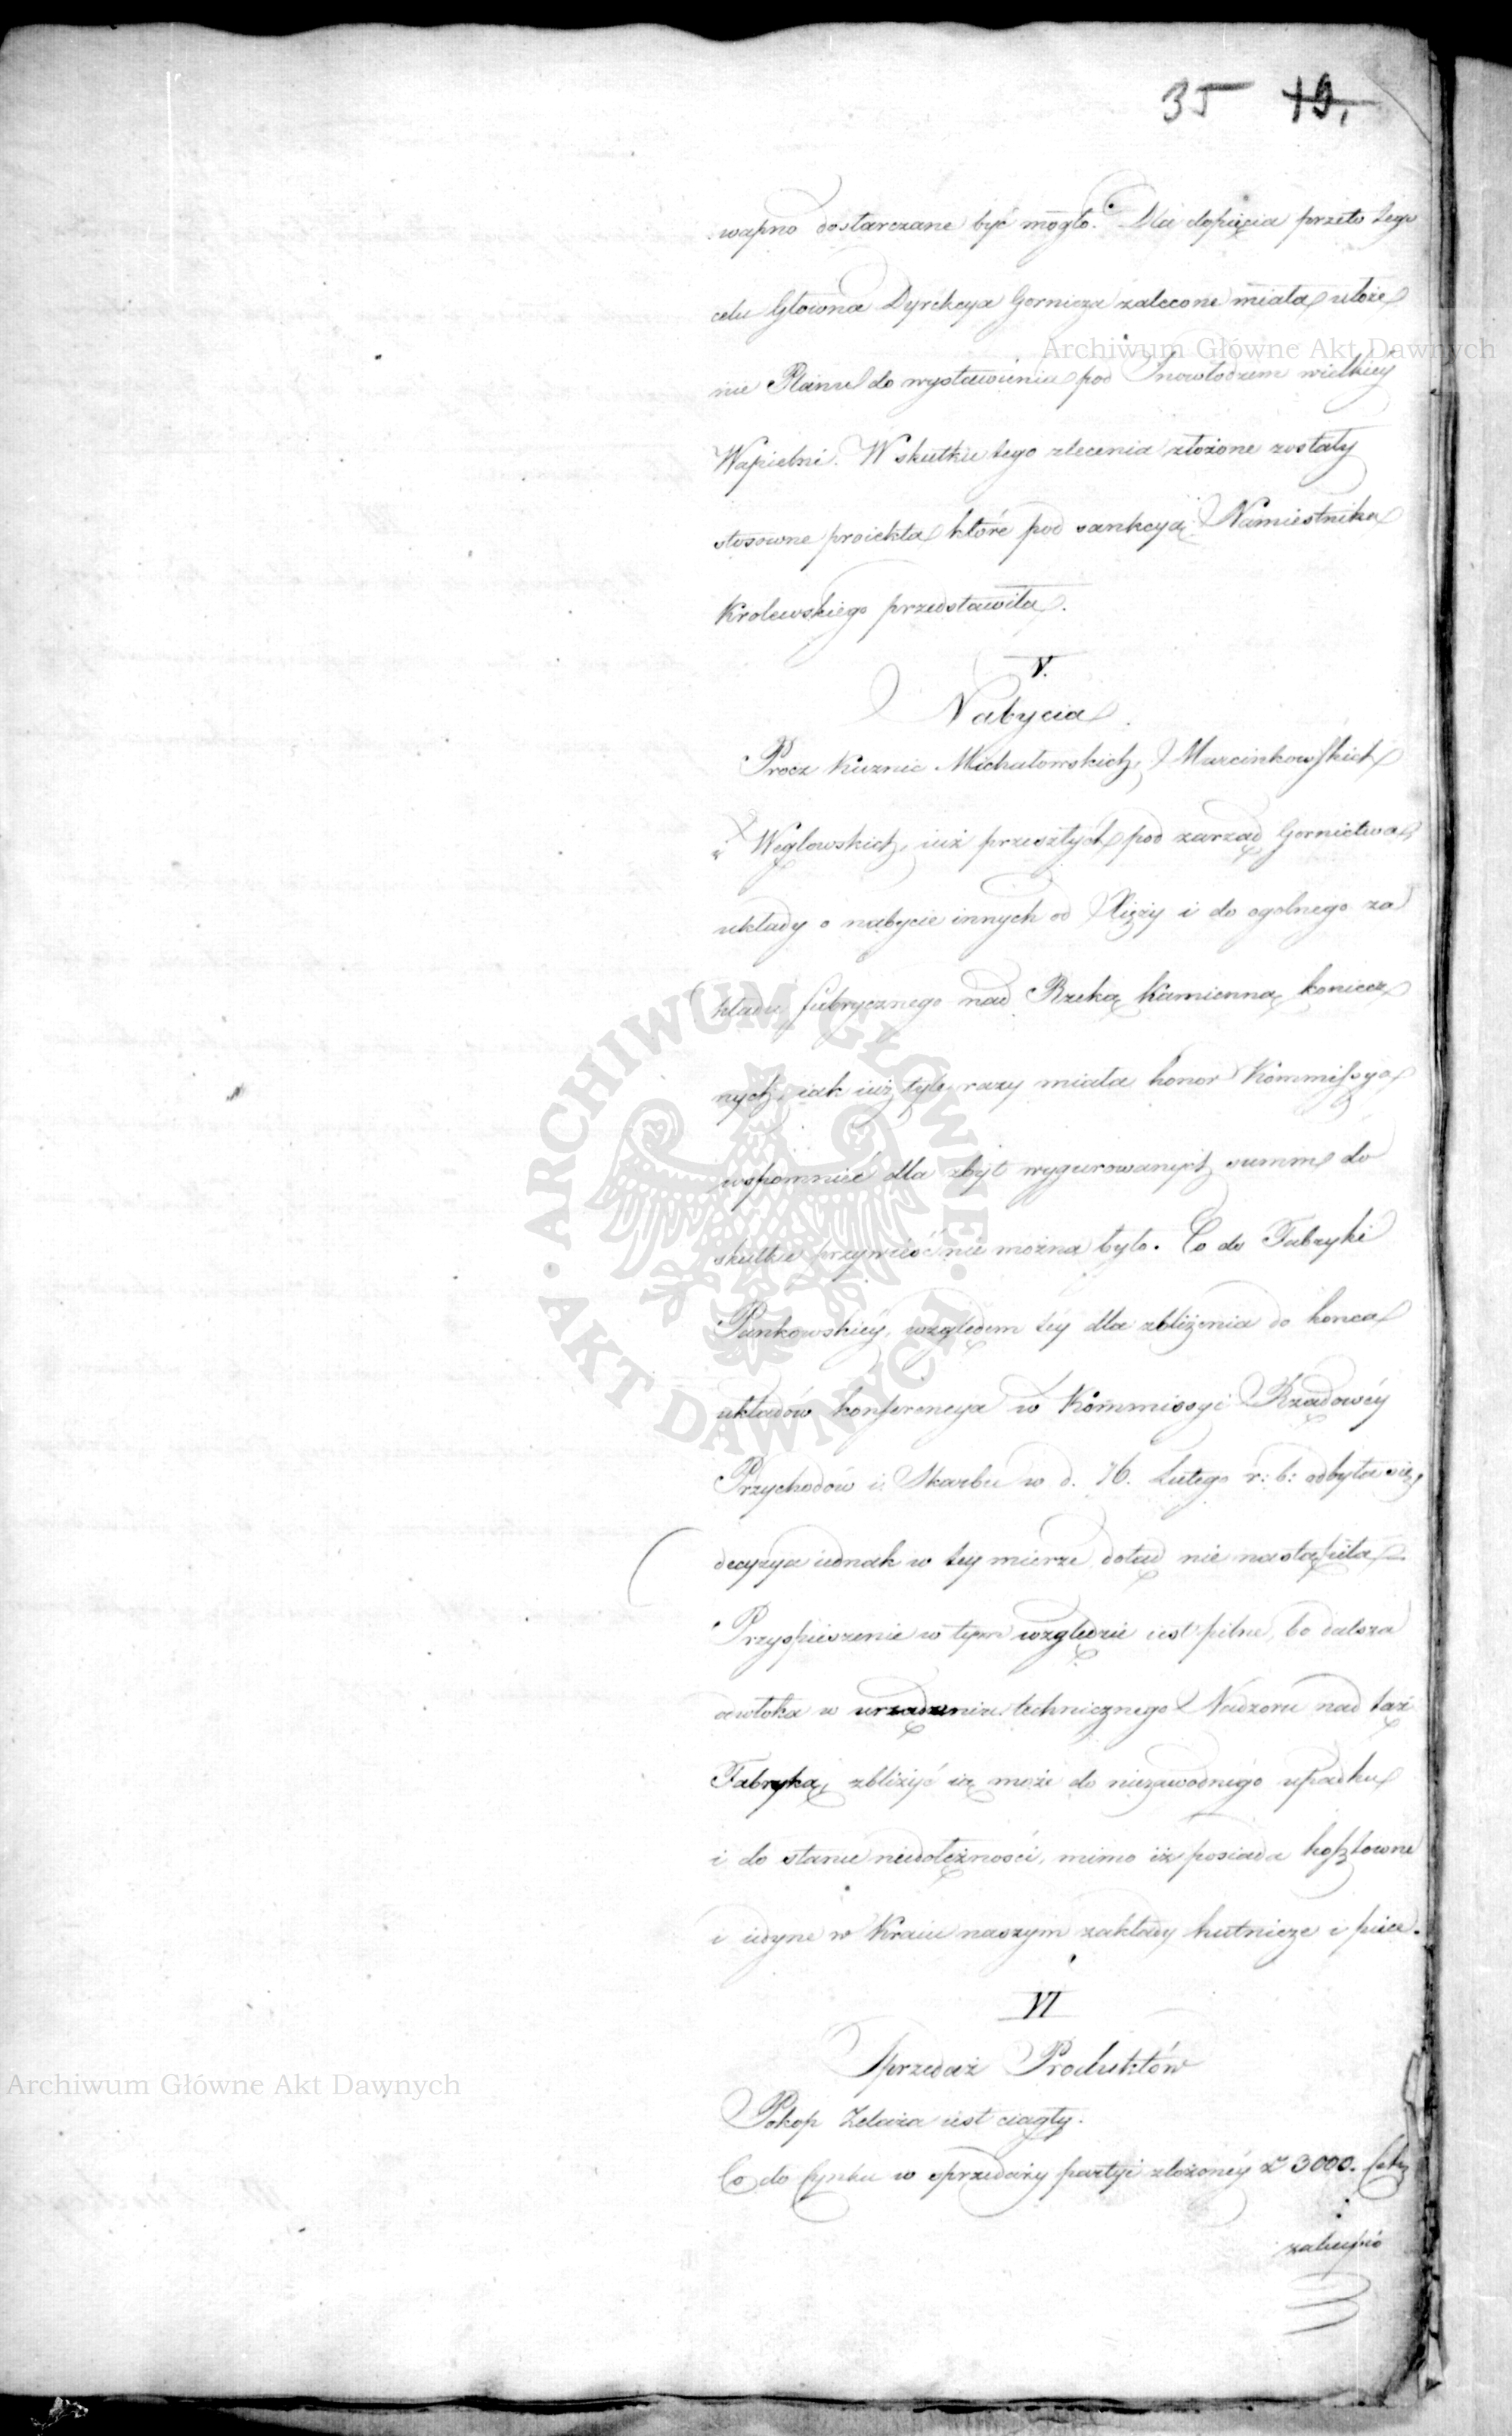 35 19.
wapno dostarczane być mogło. Dla dopięcia przeto tego
celu Głowna Dyrekcya Gornicza zalecone miała ułoże
nie Planu do wystawienia pod Inowłodzem wielkiey
Wapielni. W skutku tego zlecenia złożone zostały
stosowne proiekta które pod sankcyą Namiestnika
Krolewskiego przedstawiła.
V.
Nabycia.
Procz Kuznic Michałowskich, Marcinkowskich
i Węglowskich, iuż przeszłych pod zarząd Gornictwa,
układy o nabycie innych od Xięży i do ogolnego za
kładu fabrycznego nad Rzeką Kamienną koniecz
nych, iak iuż tyle razy miała honor Kommissya
wspomnieć dla zbyt wygurowanych summ do
skutku przywieść nie można było. Co do Fabryki
Pankowskiey, względem tey dla zbliżenia do końca
układów konferencya w Kommissyi Rządowéy
Przychodów i Skarbu w d. 16. Lutego r: b: odbyła się,
decyzya iednak w tey mierze dotąd nie nastąpiła
Przyspieszenie w tym względzie iest pilne, bo dalsza
zwłoka w urządzeniu technicznego Nadzoru nad taż
Fabryką, zbliżyć ią może do niezawodnego upadku
i do stanu niedołężności, mimo iż posiada kosztowne
i iedyne w Kraiu naszym zakłady hutnicze i piece.
VI
Sprzedaż Produktów
Pokop Żelaza iest ciągły.
Co do Cynku w sprzedaży partyi złożoney z 3000. Cetn
zakupio
Archiwum Główne Akt Dawnych
ARCHIWUM GŁÓWNE AKT DAWNYCH
Archiwum Główne Akt Dawnych